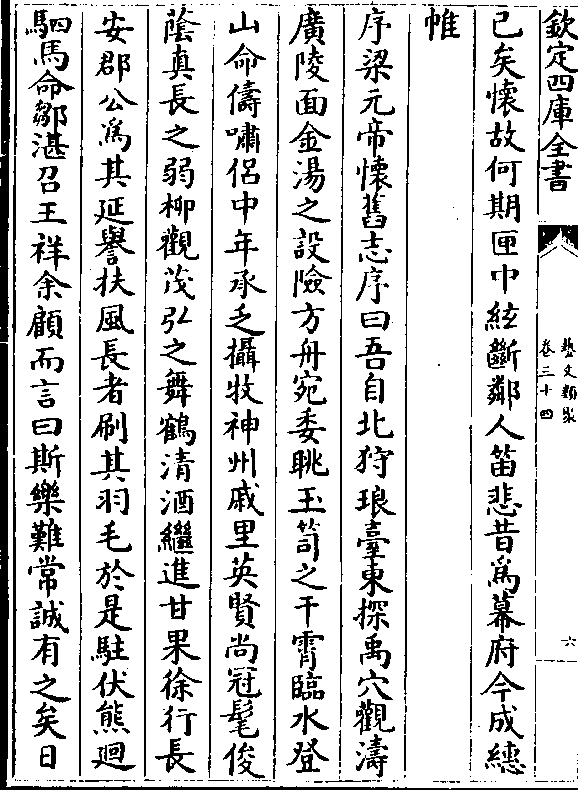 欽定四庫全書
藝文類聚
卷三十四
六
已矣懷故何期匣中絃斷鄰人笛悲昔為幕府今成繐
帷
序梁元帝懷舊志序曰吾自北狩琅臺東探禹穴觀濤
廣陵面金湯之設險方舟宛委眺玉笥之干霄臨水登
山命儔嘯侶中年承乏攝牧神州戚里英賢尚冠髦俊
蔭真長之弱柳觀茂弘之舞鶴清酒繼進甘果徐行長
安郡公為其延譽扶風長者刷其羽毛於是駐伏熊迴
駟馬命鄒湛召王祥余顧而言曰斯樂難常誠有之矣日